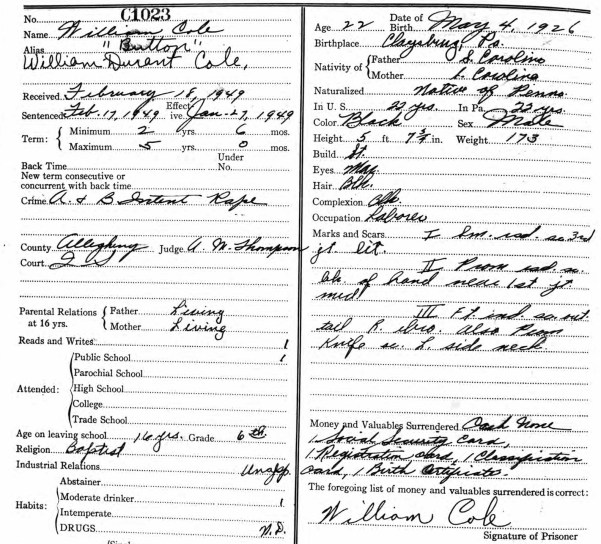 No. C1023
Name William Cole
Alias "Button"
William Durant Cole,
Received February 18, 1949
Sentenced Feb. 17, 1949 Effective Jan. 27, 1949
Term: { Minimum 2 yrs. 6 mos.
Maximum 5 yrs. 0 mos.
Back Time Under No.
New term consecutive or
concurrent with back time
Crime A. & B. Intent Rape
County Allegheny Judge A. M. Thompson
Court
Parental Relations { Father Living
at 16 yrs. Mother Living
Reads and Writes 1
Attended: { Public School 1
Parochial School
High School
College
Trade School
Age on leaving school 16 yrs. Grade 6th
Religion Baptist
Industrial Relations Unapp.
Habits: { Abstainer
Moderate drinker 1
Intemperate
DRUGS N.D.
Age 22 Date of Birth May 4, 1926
Birthplace Claysburg Pa.
Nativity of { Father S. Carolina
Mother S. Carolina
Naturalized Native of Penna.
In U. S. 22 yrs. In Pa. 22 yrs.
Color Black Sex Male
Height 5 ft 7 3/4 in. Weight 173
Build St.
Eyes May
Hair Blk.
Complexion Blk.
Occupation Laborer
Marks and Scars I Sm. rad. sc. 3rd
jt. lit.
II Prom rad. sc.
bk. of hand near 1st jt
mid
III Ft ind sc. out.
tail R. Also Prom
Knife sc. L. side neck.
Money and Valuables Surrendered Cash None
1 Social Security Card,
1 Registration card, 1 Classification
card, 1 Birth Certificate
The foregoing list of money and valuables surrendered is correct:
William Cole
Signature of Prisoner